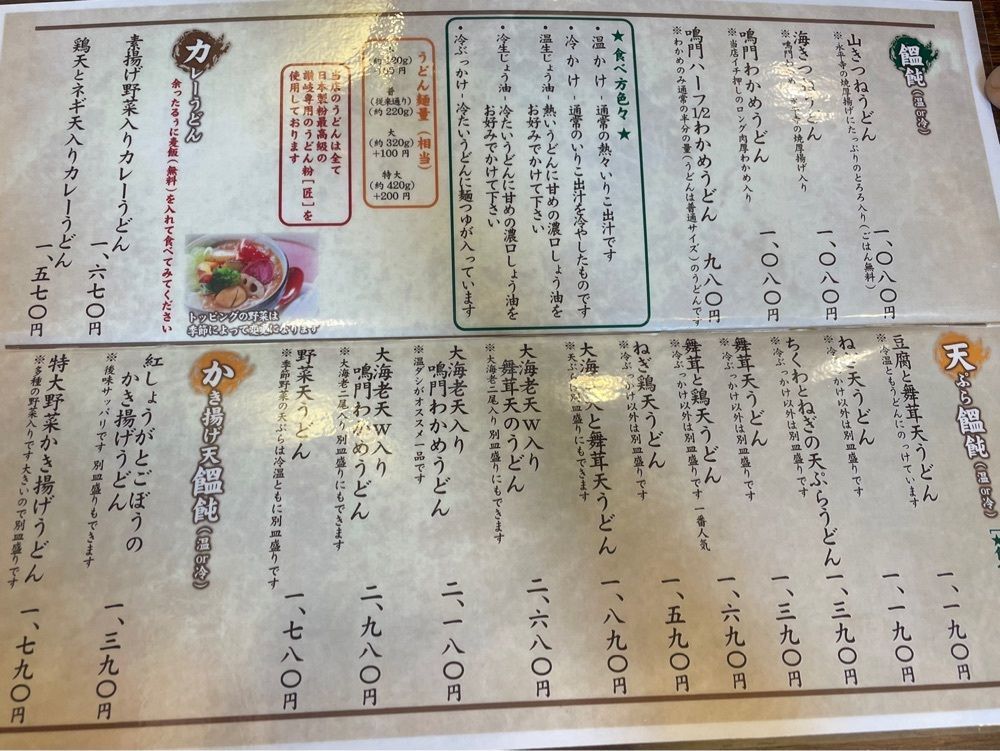 饂飩(温or冷)
山きつねうどん 一、〇八〇円
※永平寺の焼厚揚げにたっぷりのとろろ入り(ごはん無料)
海きつねうどん 一、〇八〇円
の焼厚揚げ入り
鳴門わかめうどん 一、〇八〇円
※当店イチ押しのロング肉厚わかめ入り
鳴門ハーフ1/2わかめうどん 九八〇円
※わかめのみ通常の半分の量(うどんは普通サイズ)のうどんです
★食べ方色々★
・温かけ - 通常の熱々いりこ出汁です
・冷かけ - 通常のいりこ出汁を冷やしたものです
・温生じょう油 - 熱いうどんに甘めの濃口しょう油を
お好みでかけて下さい
・冷生じょう油 - 冷たいうどんに甘めの濃口しょう油を
お好みでかけて下さい
・冷ぶっかけ - 冷たいうどんに麺つゆが入っています
うどん麺量(相当)
普
(従来通り)
(約220g)
大
(約320g)
+100円
特大
(約420g)
+200円
当店のうどんは全て
日本製粉最高級の
讃岐専用のうどん粉「匠」を
使用しております
カレーうどん
余ったるぅに麦飯(無料)を入れて食べてみてください
素揚げ野菜入りカレーうどん 一、六七〇円
鶏天とネギ天入りカレーうどん 一、五七〇円
トッピングの野菜は
季節によって変更になります
天ぷら饂飩(温or冷)
豆腐と舞茸天うどん 一、一九〇円
※冷温ともうどんにのっけています
ねぎ天うどん 一、一九〇円
※冷ぶっかけ以外は別皿盛りです
ちくわとねぎの天ぷらうどん 一、三九〇円
※冷ぶっかけ以外は別皿盛りです
舞茸天うどん 一、三九〇円
※冷ぶっかけ以外は別皿盛りです
舞茸と鶏天うどん 一、六九〇円
※冷ぶっかけ以外は別皿盛りです 一番人気
ねぎ鶏天うどん 一、五九〇円
※冷ぶっかけ以外は別皿盛りです
大海老天入と舞茸天うどん 一、八九〇円
※天ぷら別皿盛りにもできます
大海老天W入り
舞茸天のうどん 二、六八〇円
※大海老二尾入り別皿盛りにもできます
大海老天入り
鳴門わかめうどん 二、一八〇円
※温ダシがオススメ一品です
大海老天W入り
鳴門わかめうどん 二、九八〇円
※大海老二尾入り別皿盛りにもできます
野菜天うどん 一、七八〇円
※季節野菜の天ぷらは冷温ともに別皿盛りにもできます
かき揚げ天饂飩(温or冷)
紅しょうがとごぼうの
かき揚げうどん 一、三九〇円
※後味サッパリです 別皿盛りもできます
特大野菜かき揚げうどん 一、七九〇円
※多種の野菜入りです大きいので別皿盛りです